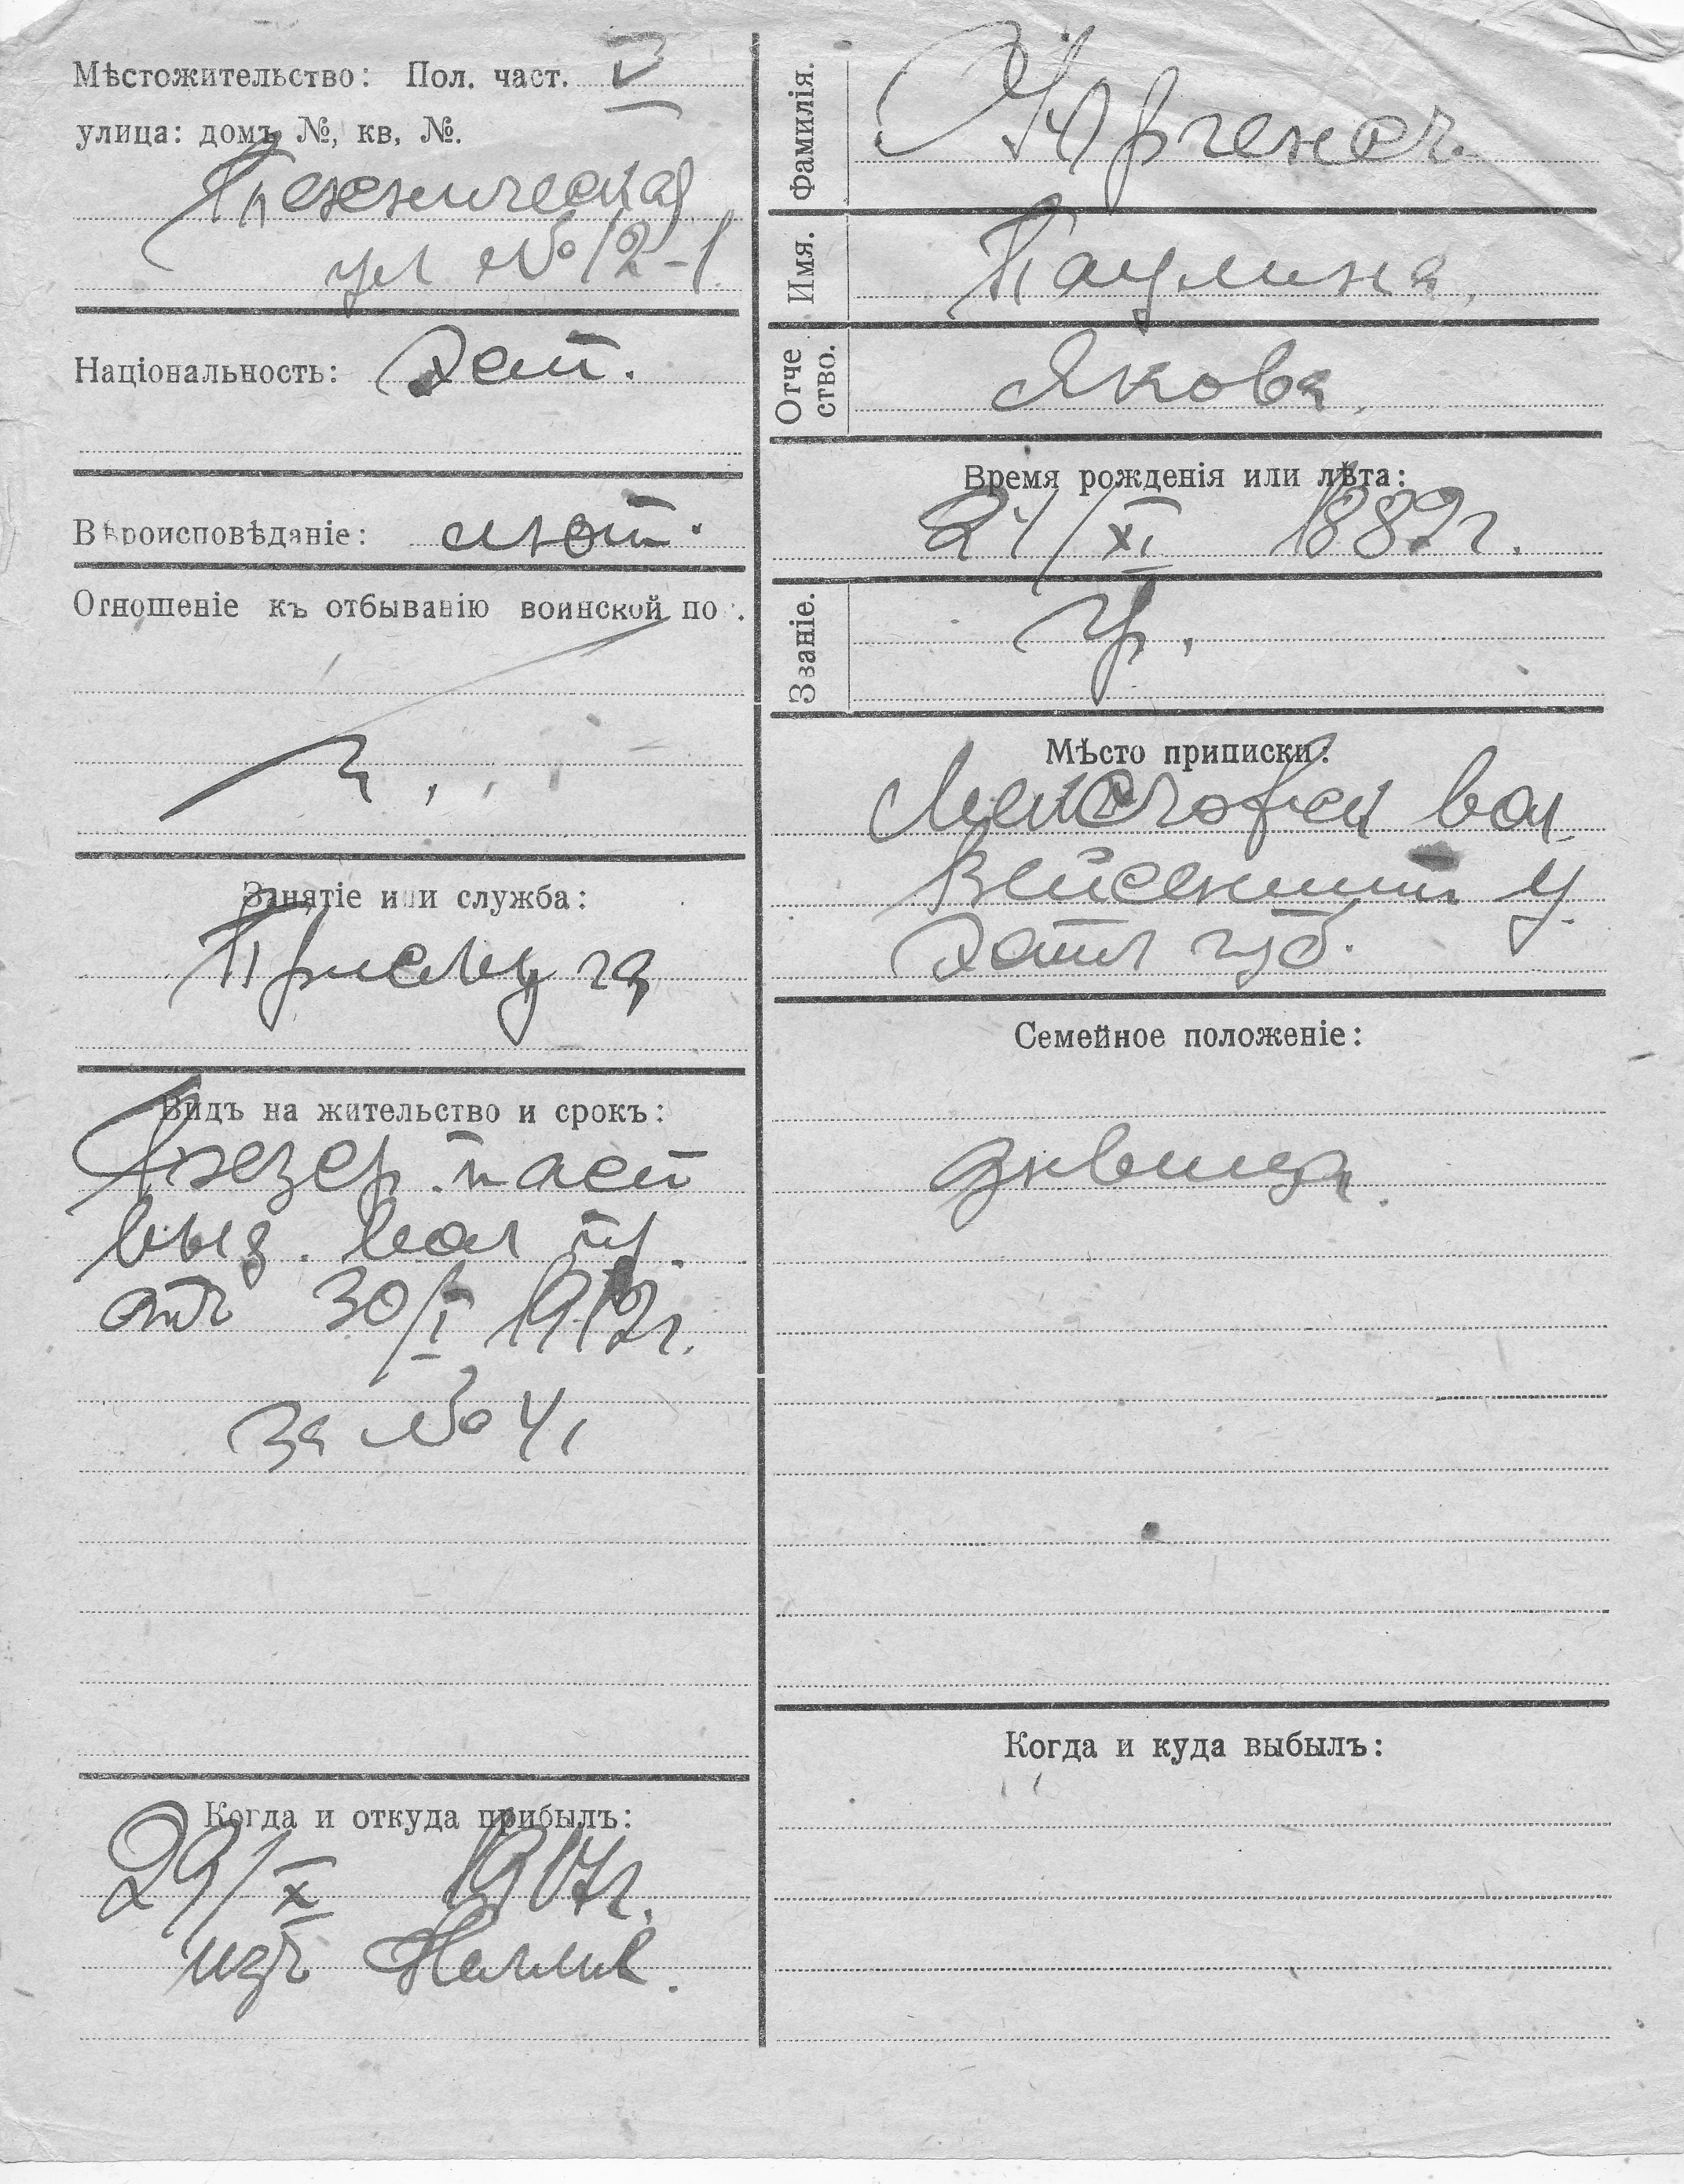 Мѣстожительство: Пол. част. V
улица: домъ №, кв, №.
Техническая
ул №12-1.
Національность: Эст.
Вѣроисповѣданіе: лют.
Отношеніе къ отбыванію воинской по .
Занятіе или служба:
Прислуга
Видъ на жительство и срокъ:
паст
выд. вол пр.
отъ 30/I 1912г.
за № 41
Когда и откуда прибылъ:
29/X 1917г.
изъ
Фамилія. Юргенсъ.
Имя. Паулина,
Отче
ство. Якова,
Время рожденія или лѣта:
24/XI 1882г.
Званіе. кр.
Мѣсто приписки:
вол.
Вейсеншт у.
Эстл губ.
Семейное положеніе:
дѣвица.
Когда и куда выбылъ: